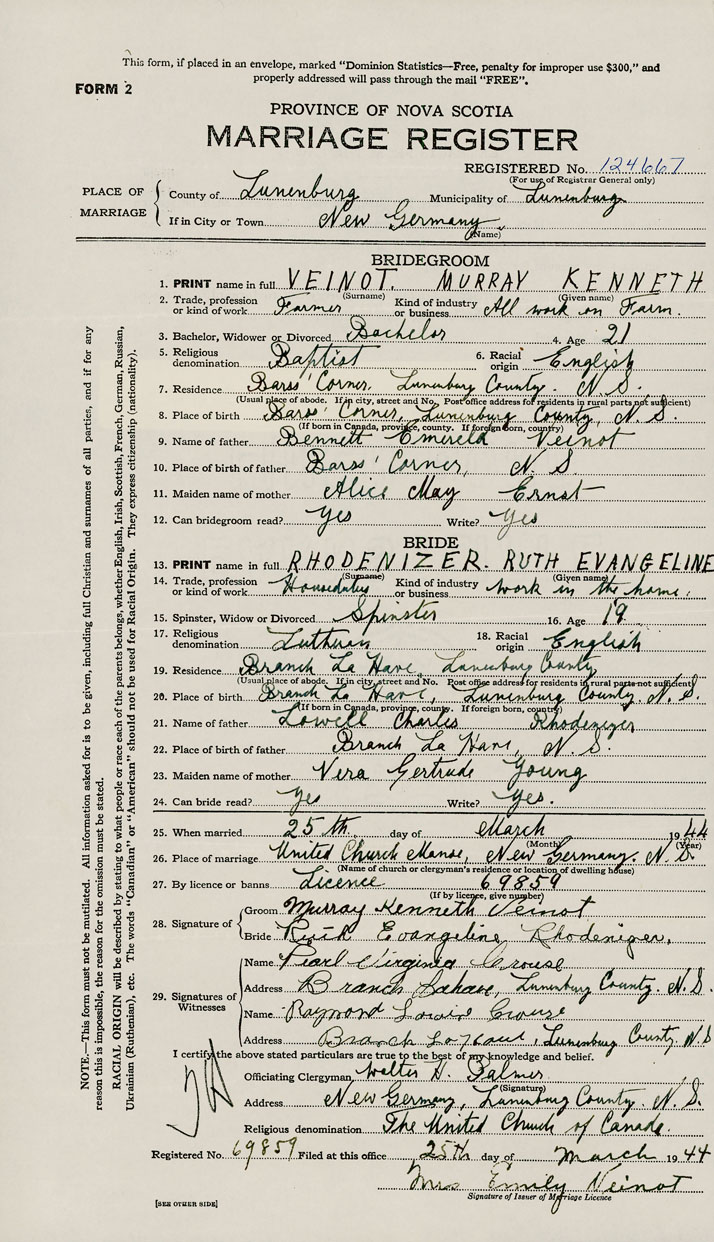 This form, if placed in an envelope, marked "Dominion Statistics—Free, penalty for improper use $300," and
properly addressed will pass through the mail "FREE".
FORM 2
PROVINCE OF NOVA SCOTIA
MARRIAGE REGISTER
REGISTERED No. 124667
(For use of Registrar General only)
PLACE OF MARRIAGE
County of Lunenburg Municipality of Lunenburg
If in City or Town New Germany
(Name)
BRIDEGROOM
1. PRINT name in full VEINOT. MURRAY KENNETH
(Surname) (Given name)
2. Trade, profession or kind of work Farmer Kind of industry or business All work on Farm.
3. Bachelor, Widower or Divorced Bachelor 4. Age 21
5. Religious denomination Baptist 6. Racial origin English
7. Residence Barss' Corner, Lunenburg County. N.S.
(Usual place of abode. If in city, street and No. Post office address for residents in rural parts not sufficient)
8. Place of birth Barss' Corner, Lunenburg County, N.S.
(If born in Canada, province, county. If foreign born, country)
9. Name of father Bennett Emereld Veinot
10. Place of birth of father Barss' Corner, N.S.
11. Maiden name of mother Alice May Ernst
12. Can bridegroom read? Yes Write? Yes
BRIDE
13. PRINT name in full RHODENIZER. RUTH EVANGELINE
(Surname) (Given name)
14. Trade, profession or kind of work Houseduties Kind of industry or business work in the home.
15. Spinster, Widow or Divorced Spinster 16. Age 19
17. Religious denomination Lutheran 18. Racial origin English
19. Residence Branch La Have, Lunenburg County
(Usual place of abode. If in city, street and No. Post office address for residents in rural parts not sufficient)
20. Place of birth Branch La Have, Lunenburg County. N.S.
(If born in Canada, province, county. If foreign born, country)
21. Name of father Lowell Charles Rhodenizer
22. Place of birth of father Branch La Have, N.S.
23. Maiden name of mother Vera Gertrude Young
24. Can bride read? Yes Write? Yes.
25. When married 25th day of March 1944
(Month) (Year)
26. Place of marriage United Church Manse, New Germany. N.S.
(Name of church or clergyman's residence or location of dwelling house)
27. By licence or banns Licence 69859
(If by licence, give number)
28. Signature of
Groom Murray Kenneth Veinot
Bride Ruth Evangeline Rhodenizer,
29. Signatures of Witnesses
Name Pearl Virginia Crouse
Address Branch Lahave, Lunenburg County. N.S.
Name Raymond Louis Crouse
Address Branch La Have, Lunenburg County. N.S
I certify the above stated particulars are true to the best of my knowledge and belief.
Officiating Clergyman Walter H. Palmer
(Signature)
Address New Germany, Lunenburg County. N.S.
Religious denomination The United Church of Canada.
Registered No. 69859 Filed at this office 25th day of March 1944
Mrs Emily Veinot
Signature of Issuer of Marriage Licence
[SEE OTHER SIDE]
NOTE.—This form must not be mutilated. All information asked for is to be given, including full Christian and surnames of all parties, and if for any
reason this is impossible, the reason for the omission must be stated.
RACIAL ORIGIN will be described by stating to what people or race each of the parents belongs, whether English, Irish, Scottish, French, German, Russian,
Ukrainian (Ruthenian), etc. The words "Canadian" or "American" should not be used for Racial Origin. They express citizenship (nationality).